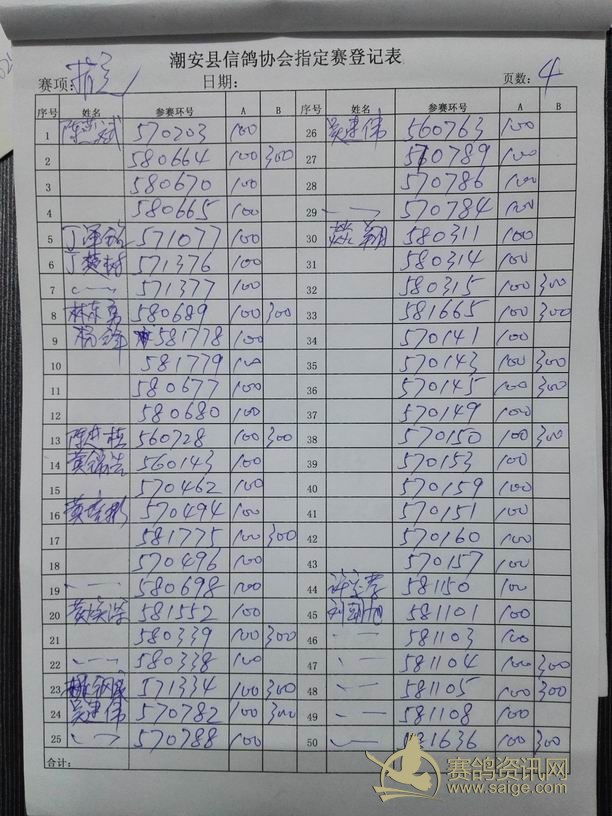 潮安县信鸽协会指定赛登记表
赛项: 指定 日期: 页数: 4
序号 姓名 参赛环号 A B 序号 姓名 参赛环号 A B
1 570203 100 26 吴建伟 560763 100
2 580664 100 300 27 570789 100
3 580670 100 28 570786 100
4 580665 100 29 570784 100
5 571077 100 30 580311 100
6 571376 100 31 580314 100
7 571377 100 32 580315 100 300
8 林东 580689 100 300 33 581665 100 300
9 杨锋 581778 100 34 570141 100
10 581779 100 35 570143 100 300
11 580677 100 36 570145 100 300
12 580680 100 37 570149 100
13 560728 100 300 38 570150 100 300
14 560143 100 39 570153 100
15 570462 100 40 570159 100
16 570494 100 41 570151 100
17 581775 100 300 42 570160 100
18 570496 100 43 570157 100
19 580698 100 44 581150 100
20 581552 100 45 581101 100
21 580339 100 300 46 581103 100
22 580338 100 47 581104 100 300
23 571334 100 300 48 581105 100 300
24 吴建伟 570782 100 300 49 581108 100
25 570788 100 50 581636 100 300
合计:
赛鸽资讯网
www.saige.com